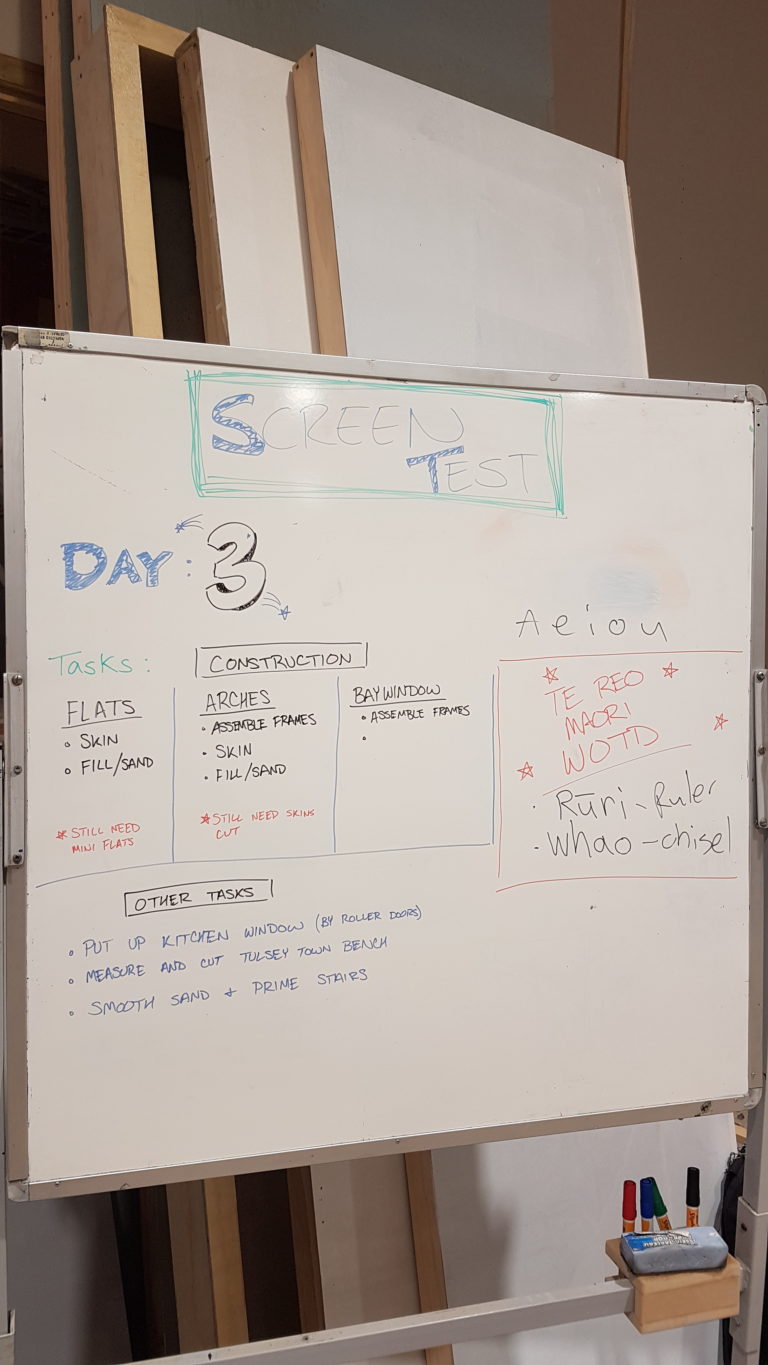 SCREEN
TEST
DAY: 3
Tasks:
CONSTRUCTION
FLATS
• SKIN
• FILL/SAND
* STILL NEED
MINI FLATS
ARCHES
• ASSEMBLE FRAMES
• SKIN
• FILL/SAND
* STILL NEED SKINS
CUT
BAY WINDOW
• ASSEMBLE FRAMES
•
Aeiou
TE REO
MAORI
WOTD
• Rūri - Ruler
• Whao - chisel
OTHER TASKS
• PUT UP KITCHEN WINDOW (BY ROLLER DOORS)
• MEASURE AND CUT TULSEY TOWN BENCH
• SMOOTH SAND & PRIME STAIRS